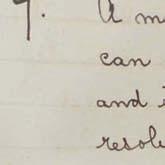 7. A m
can
and i
resol